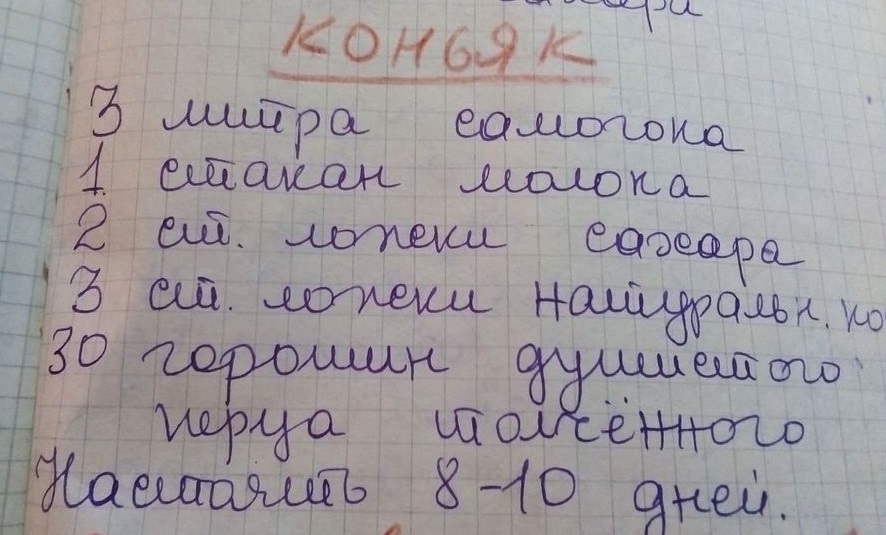 сахара
КОНЬЯК
3 литра самогона
1 стакан молока
2 ст. ложки сахара
3 ст. ложки натуральн. ко
30 горошин душистого
перца толчёного
Настоять 8-10 дней.